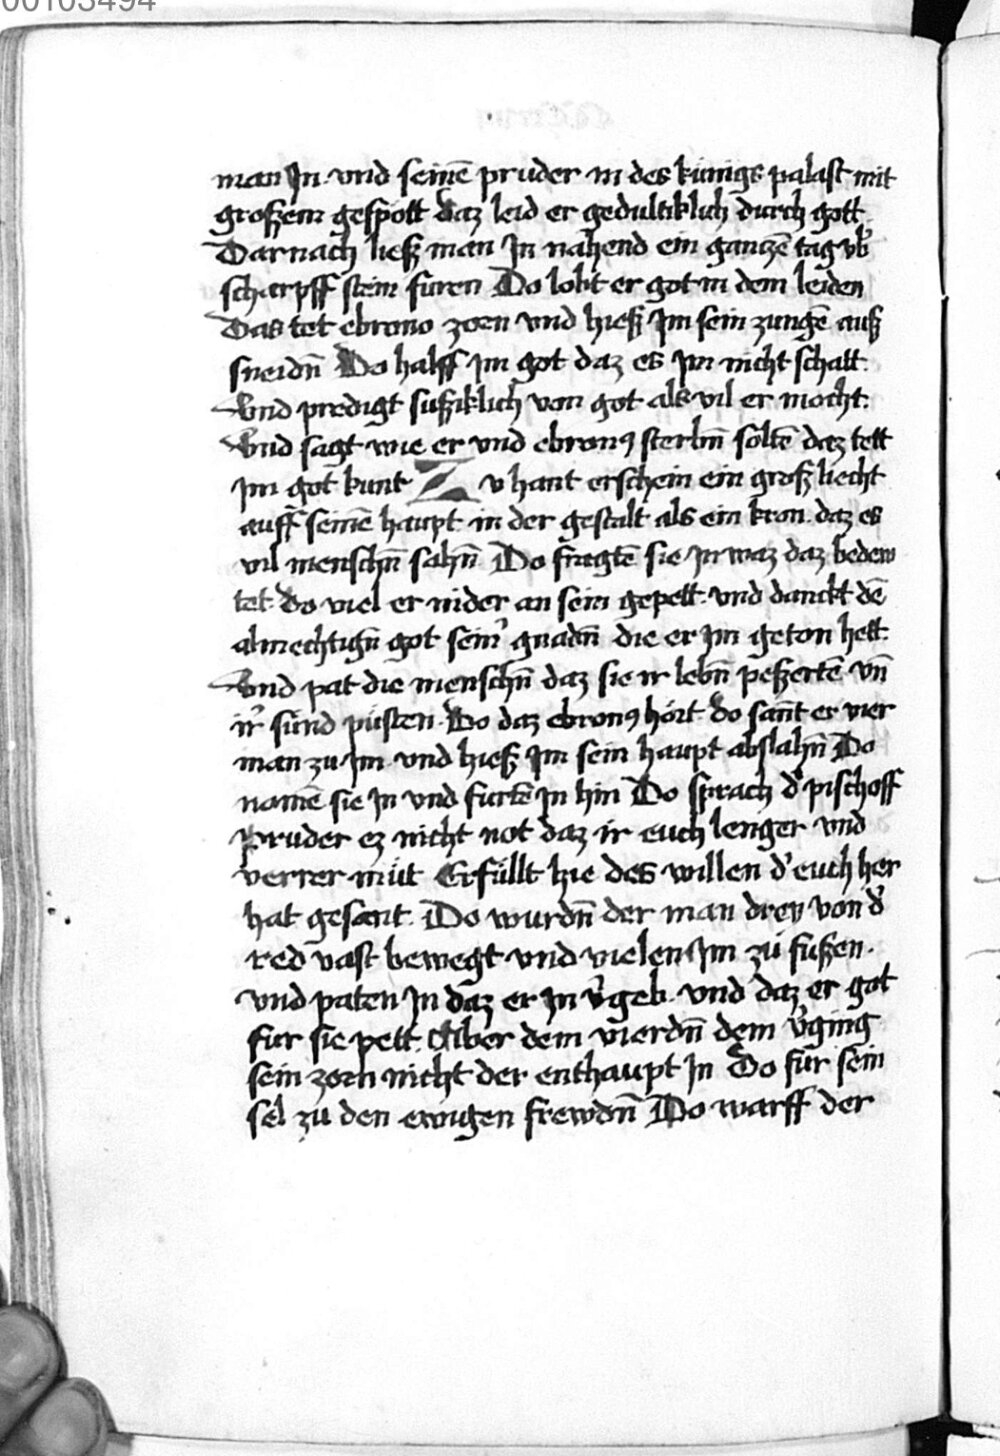 00103494
man Jn. vnd seinē pruder in des künigs palast mit
groszem gespött Daz leid er gedultiklich durch gott.
Darnach liesz man Jn nahend ein gantzē tag vb̕
scharpff stein füren Do lobt er got in dem leiden
Das tet ebrono zorn vnd hiesz Jm sein zungē ausz
sneidn̄ Do halff Jm got daz es Jm nicht schatt.
Vnd predigt suͤsziklich von got als vil er mocht.
Vnd sagt wie er vnd ebronꝰ sterbn̄ soltē daz tett
Jm got kunt Zv hant erschein ein grosz liecht
auff seinē haupt in der gestalt als ein kron. daz es
vil menschn̄ sahn̄ Do fragtē sie Jn waz daz bedew
tet. do viel er nider an sein gepett. vnd danckt dē
almechtign̄ got sein̕ gnadn̄ die er Jm geton hett.
Vnd pat die menschn̄ daz sie ir lebn̄ peszertē vn̄
ir̕ sünd püsten. Do daz ebronꝰ hört do sant er vier
man zu Jm vnd hiesz Jm sein haupt abslahn̄ Do
namē sie Jn vnd furtē Jn hin Do sprach d̕ pischoff
Pruder ez nicht not daz ir euch lenger vnd
verrer müt Erfüllt hie des willen d̕ euch her
hat gesant. Do wurdn̄ der man drey von d̕
red vast bewegt vnd vielen Jm zu fuszen.
vnd paten Jn daz er Jn v̕geb. vnd daz er got
für sie pett. Aber dem vierdn̄ dem v̕ging
sein zorn nicht der enthaupt Jn Do für sein
sel zu den ewigen frewdn̄ Do warff der